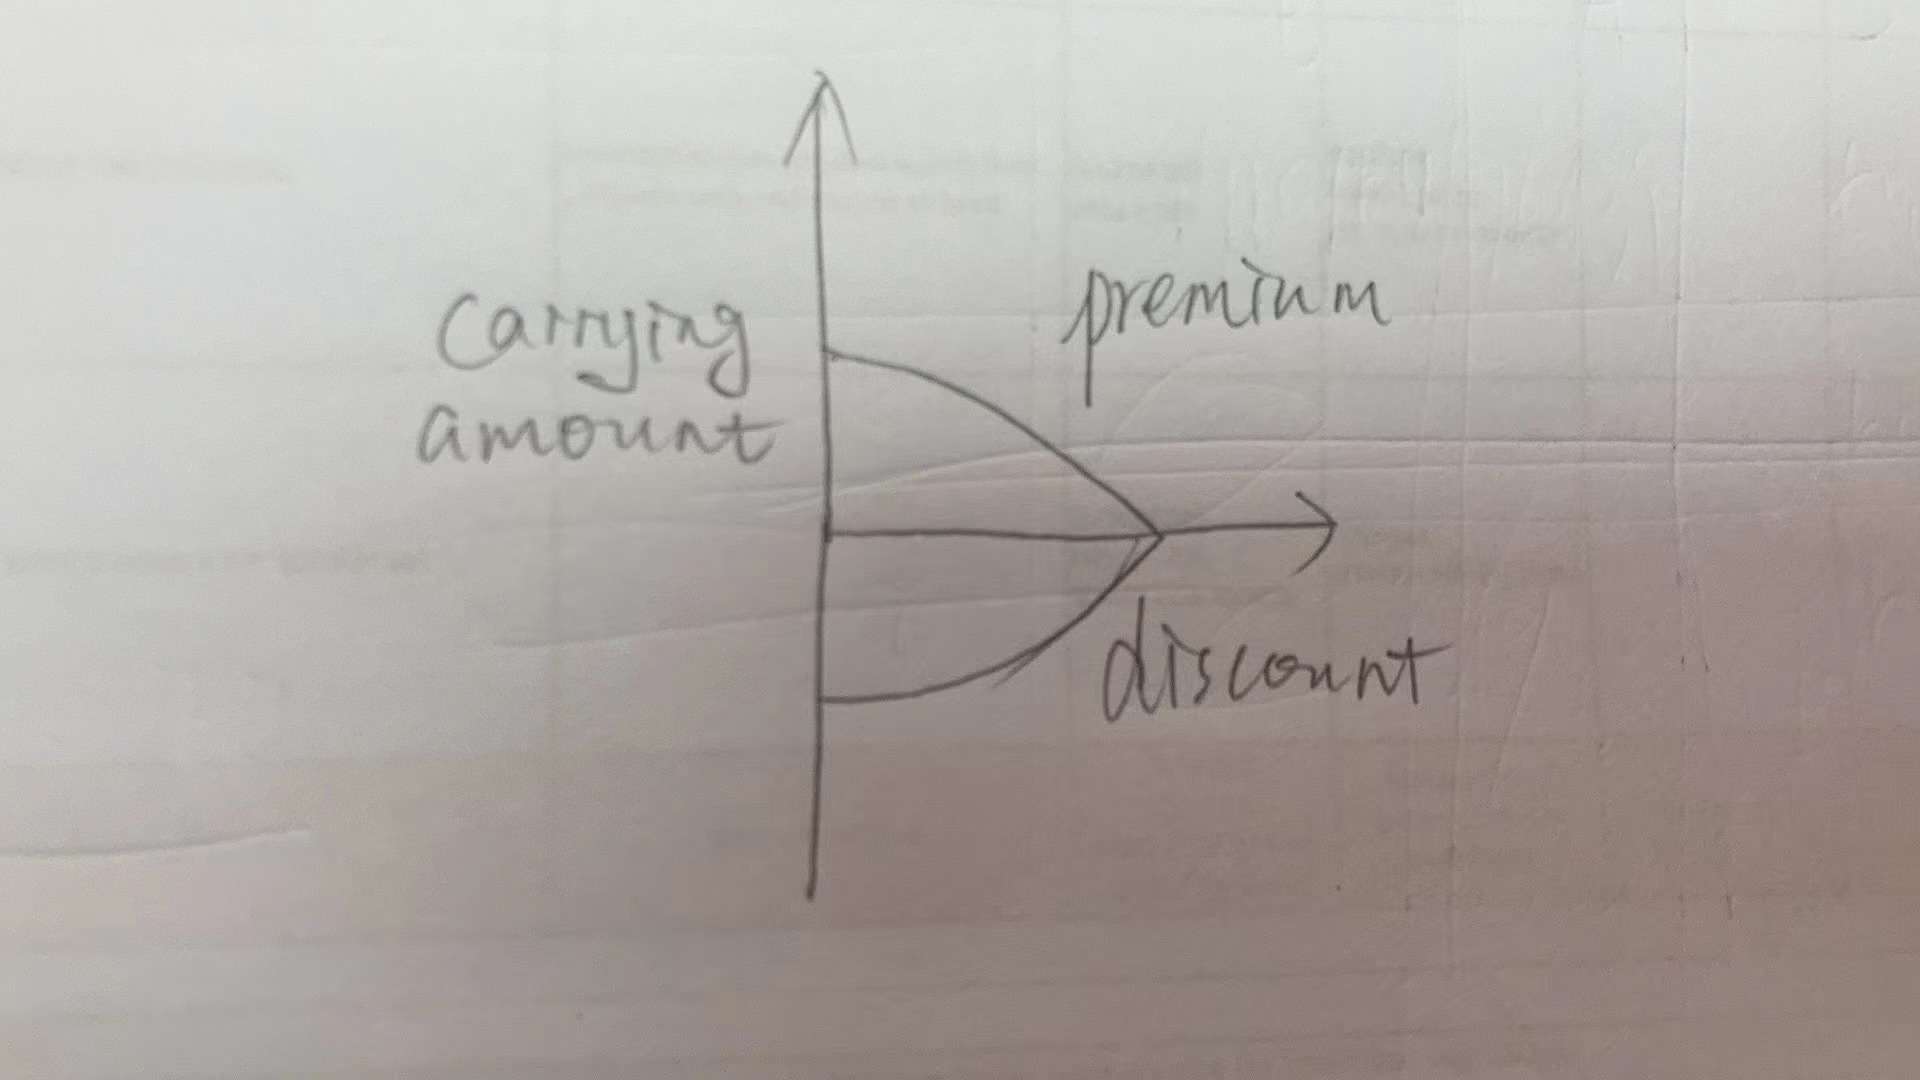 Carrying
amount
premium
discount